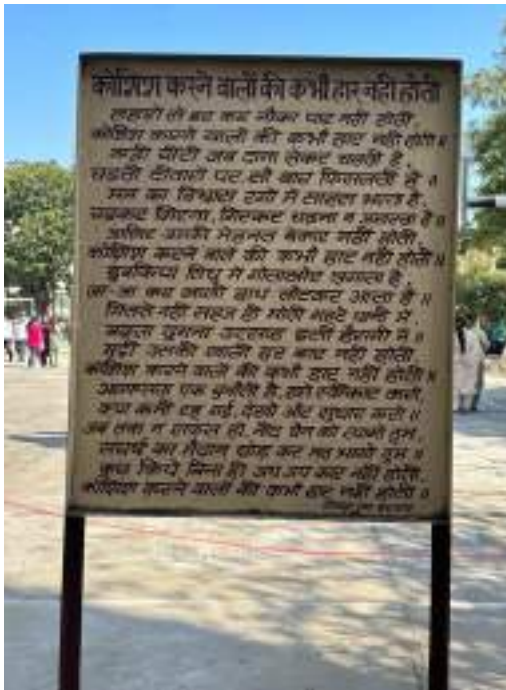 कोशिश करने वालों की कभी हार नहीं होती
लहरों से डर कर नौका पार नहीं होती
कोशिश करने वालों की कभी हार नहीं होती॥
नन्ही चींटी जब दाना लेकर चलती है,
चढ़ती दीवारों पर, सौ बार फिसलती है।
मन का विश्वास रगों में साहस भरता है,
चढ़कर गिरना, गिरकर चढ़ना न अखरता है॥
आखिर उसकी मेहनत बेकार नहीं होती,
कोशिश करने वाले की कभी हार नहीं होती॥
डुबकियां सिंधु में गोताखोर लगाता है,
जा-जा कर खाली हाथ लौटकर आता है॥
मिलते नहीं सहज ही मोती गहरे पानी में,
बढ़ता दुगना उत्साह इसी हैरानी में॥
मुट्ठी उसकी खाली हर बार नहीं होती
कोशिश करने वालों की कभी हार नहीं होती॥
असफलता एक चुनौती है, इसे स्वीकार करो
क्या कमी रह गई, देखो और सुधार करो॥
जब तक न सफल हो, नींद चैन को त्यागो तुम,
संघर्ष का मैदान छोड़ कर मत भागो तुम॥
कुछ किये बिना ही जय जय कार नहीं होती,
कोशिश करने वालों की कभी हार नहीं होती॥